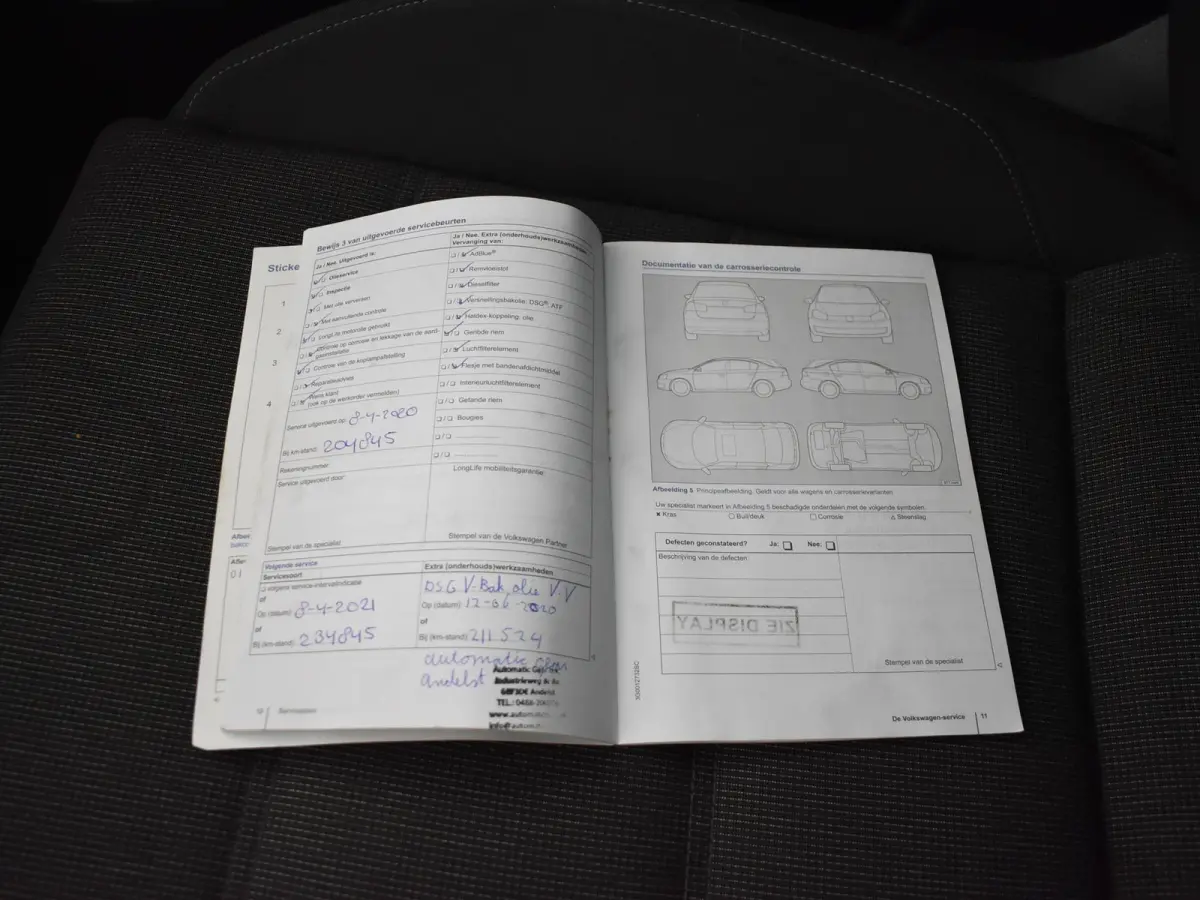 Sticke
1
2
3
4
Bewijs 3 van uitgevoerde servicebeurten
Ja / Nee, Uitgevoerd is:
Olieservice
Inspectie
Met olie verversen
Met aanvullende controle
LongLife motorolie gebruikt
Controle van de koplampafstelling
Reparatieadvies
Wens klant
(ook op de werkorder vermelden)
Service uitgevoerd op: 8-4-2020
Bij km-stand: 204845
Rekeningnummer:
Service uitgevoerd door:
Stempel van de specialist
Ja / Nee, Extra (onderhouds)werkzaamheden
Vervanging van:
AdBlue®
Remvloeistof
Dieselfilter
Versnellingsbakolie: DSG®, ATF
Haldex-koppeling: olie
Geribde riem
Luchtfilterelement
Flesje met bandenafdichtmiddel
Interieurluchtfilterelement
Getande riem
Bougies
LongLife mobiliteitsgarantie:
Stempel van de Volkswagen Partner
Volgende service
Servicesoort
volgens service-intervalindicatie
of
Op (datum): 8-4-2021
of
Bij (km-stand): 234845
Extra (onderhouds)werkzaamheden
DSG V-Bak olie V.V
Op (datum): 12-06-2020
of
Bij (km-stand): 211524
automatic
andelst
Automatic
Industrieweg
Andelst
TEL.: 0488-
www.automatic
info@autom
Documentatie van de carrosseriecontrole
Afbeelding 5 Principeafbeelding. Geldt voor alle wagens en carrosserievarianten
Uw specialist markeert in Afbeelding 5 beschadigde onderdelen met de volgende symbolen:
× Kras □ Buil/deuk □ Corrosie △ Steenslag
Defecten geconstateerd? Ja: Nee:
Beschrijving van de defecten:
ZIE DISPLAY
Stempel van de specialist
De Volkswagen-service 11